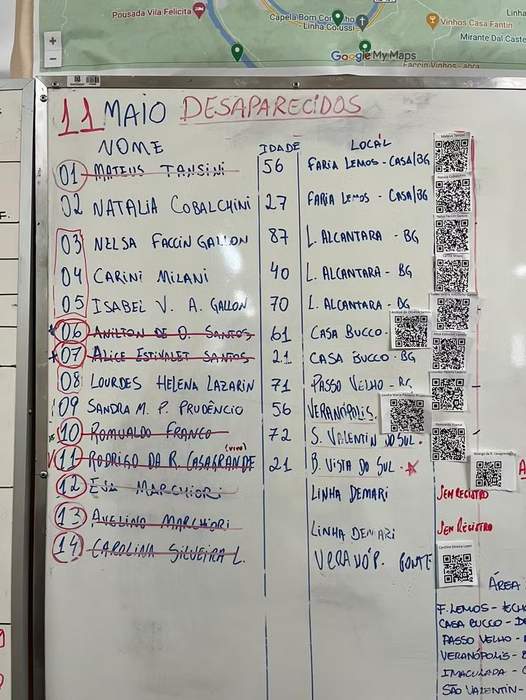 Pousada Vila Felicita
Capela Bom Co
Linha Colussi
Linha
Vinhos Casa Fantin
Mirante Dal Caste
Google My Maps
Faccin Vinhos
11 MAIO DESAPARECIDOS
NOME IDADE LOCÁL
01 MATEUS TANSINI 56 FARIA LEMOS - CASA/BG
02 NATALIA COBALCHINI 27 FARIA LEMOS - CASA/BG
03 NELSA FACCIN GALLON 87 L. ALCANTARA - BG
04 CARINI MILANI 40 L. ALCANTARA - BG
05 ISABEL V. A. GALLON 70 L. ALCANTARA - BG
06 ANILTON DE O. SANTOS 61 CASA BUCCO
07 ALICE ESTIVALET SANTOS 21 CASA BUCCO - BG
08 LOURDES HELENA LAZARIN 71 PASSO VELHO - BG
09 SANDRA M. P. PRUDÊNCIO 56 VERANÓPOLIS.
10 ROMUALDO FRANCO 72 S. VALENTIN DO SUL.
11 RODRIGO DA R. CASAGRANDE (VIVO) 21 B. VISTA DO SUL.
12 EVA MARCHIORI LINHA DEMARI SEM REGISTRO
13 AVELINO MARCHIORI LINHA DEMARI SEM REGISTRO
14 CAROLINA SILVEIRA L. VERANÓP. PONTE
ÁREA
F. LEMOS -
CASA BUCCO -
PASSO VELHO -
VERANÓPOLIS -
IMACULADA -
SÃO VALENTIN -